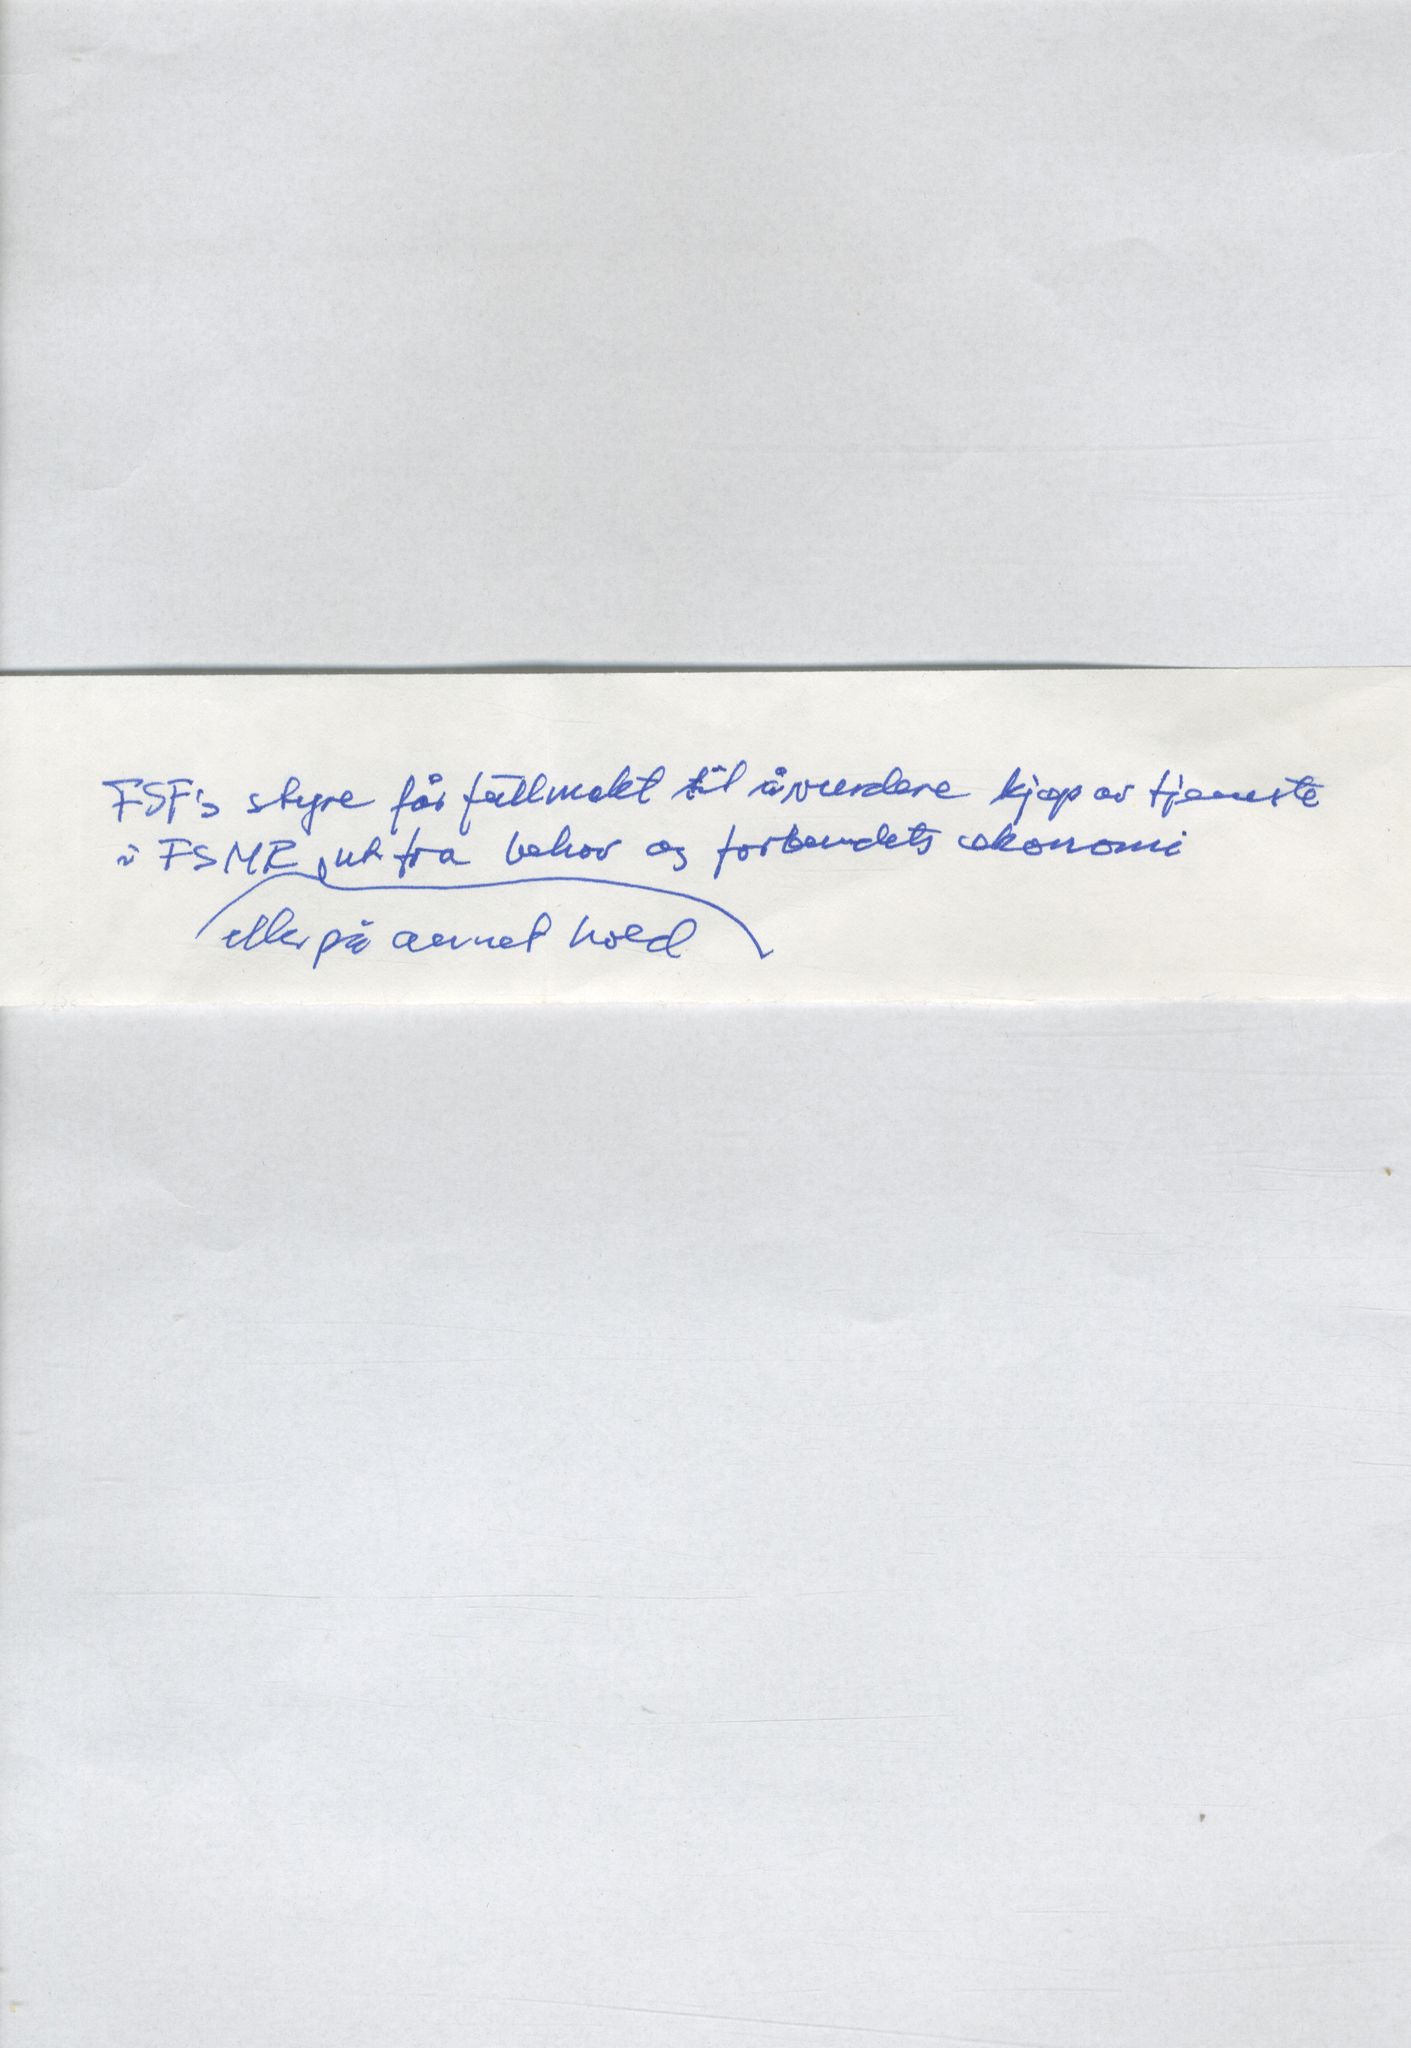 FSF's styre får fullmakt til å vurdere kjøp av tjeneste
i FSMR, ut fra behov og forbundets økonomi
eller på annet hold